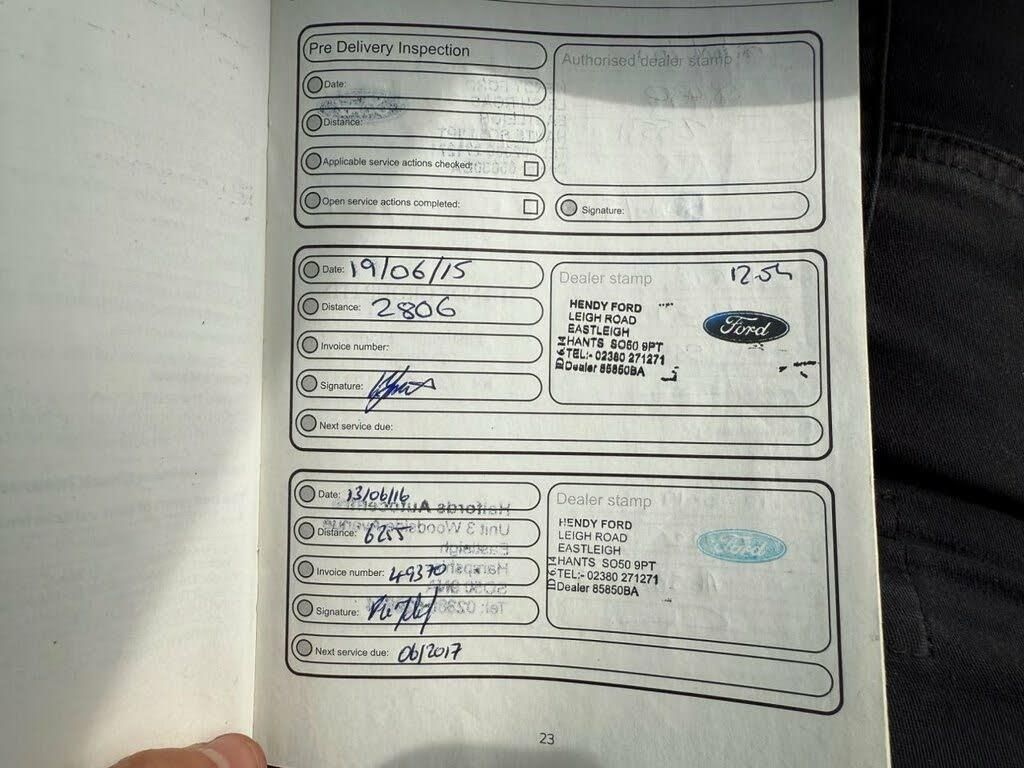 Pre Delivery Inspection
Authorised dealer stamp
Date:
Distance:
Applicable service actions checked:
Open service actions completed:
Signature:
Date: 19/06/15
Distance: 2806
Invoice number:
Signature:
Next service due:
Dealer stamp
HENDY FORD
LEIGH ROAD
EASTLEIGH
HANTS SO50 9PT
TEL:- 02380 271271
Dealer 85850BA
Ford
Date: 13/06/16
Distance: 6255
Invoice number: 49370
Signature:
Next service due: 06/2017
Dealer stamp
HENDY FORD
LEIGH ROAD
EASTLEIGH
HANTS SO50 9PT
TEL:- 02380 271271
Dealer 85850BA
Ford
23